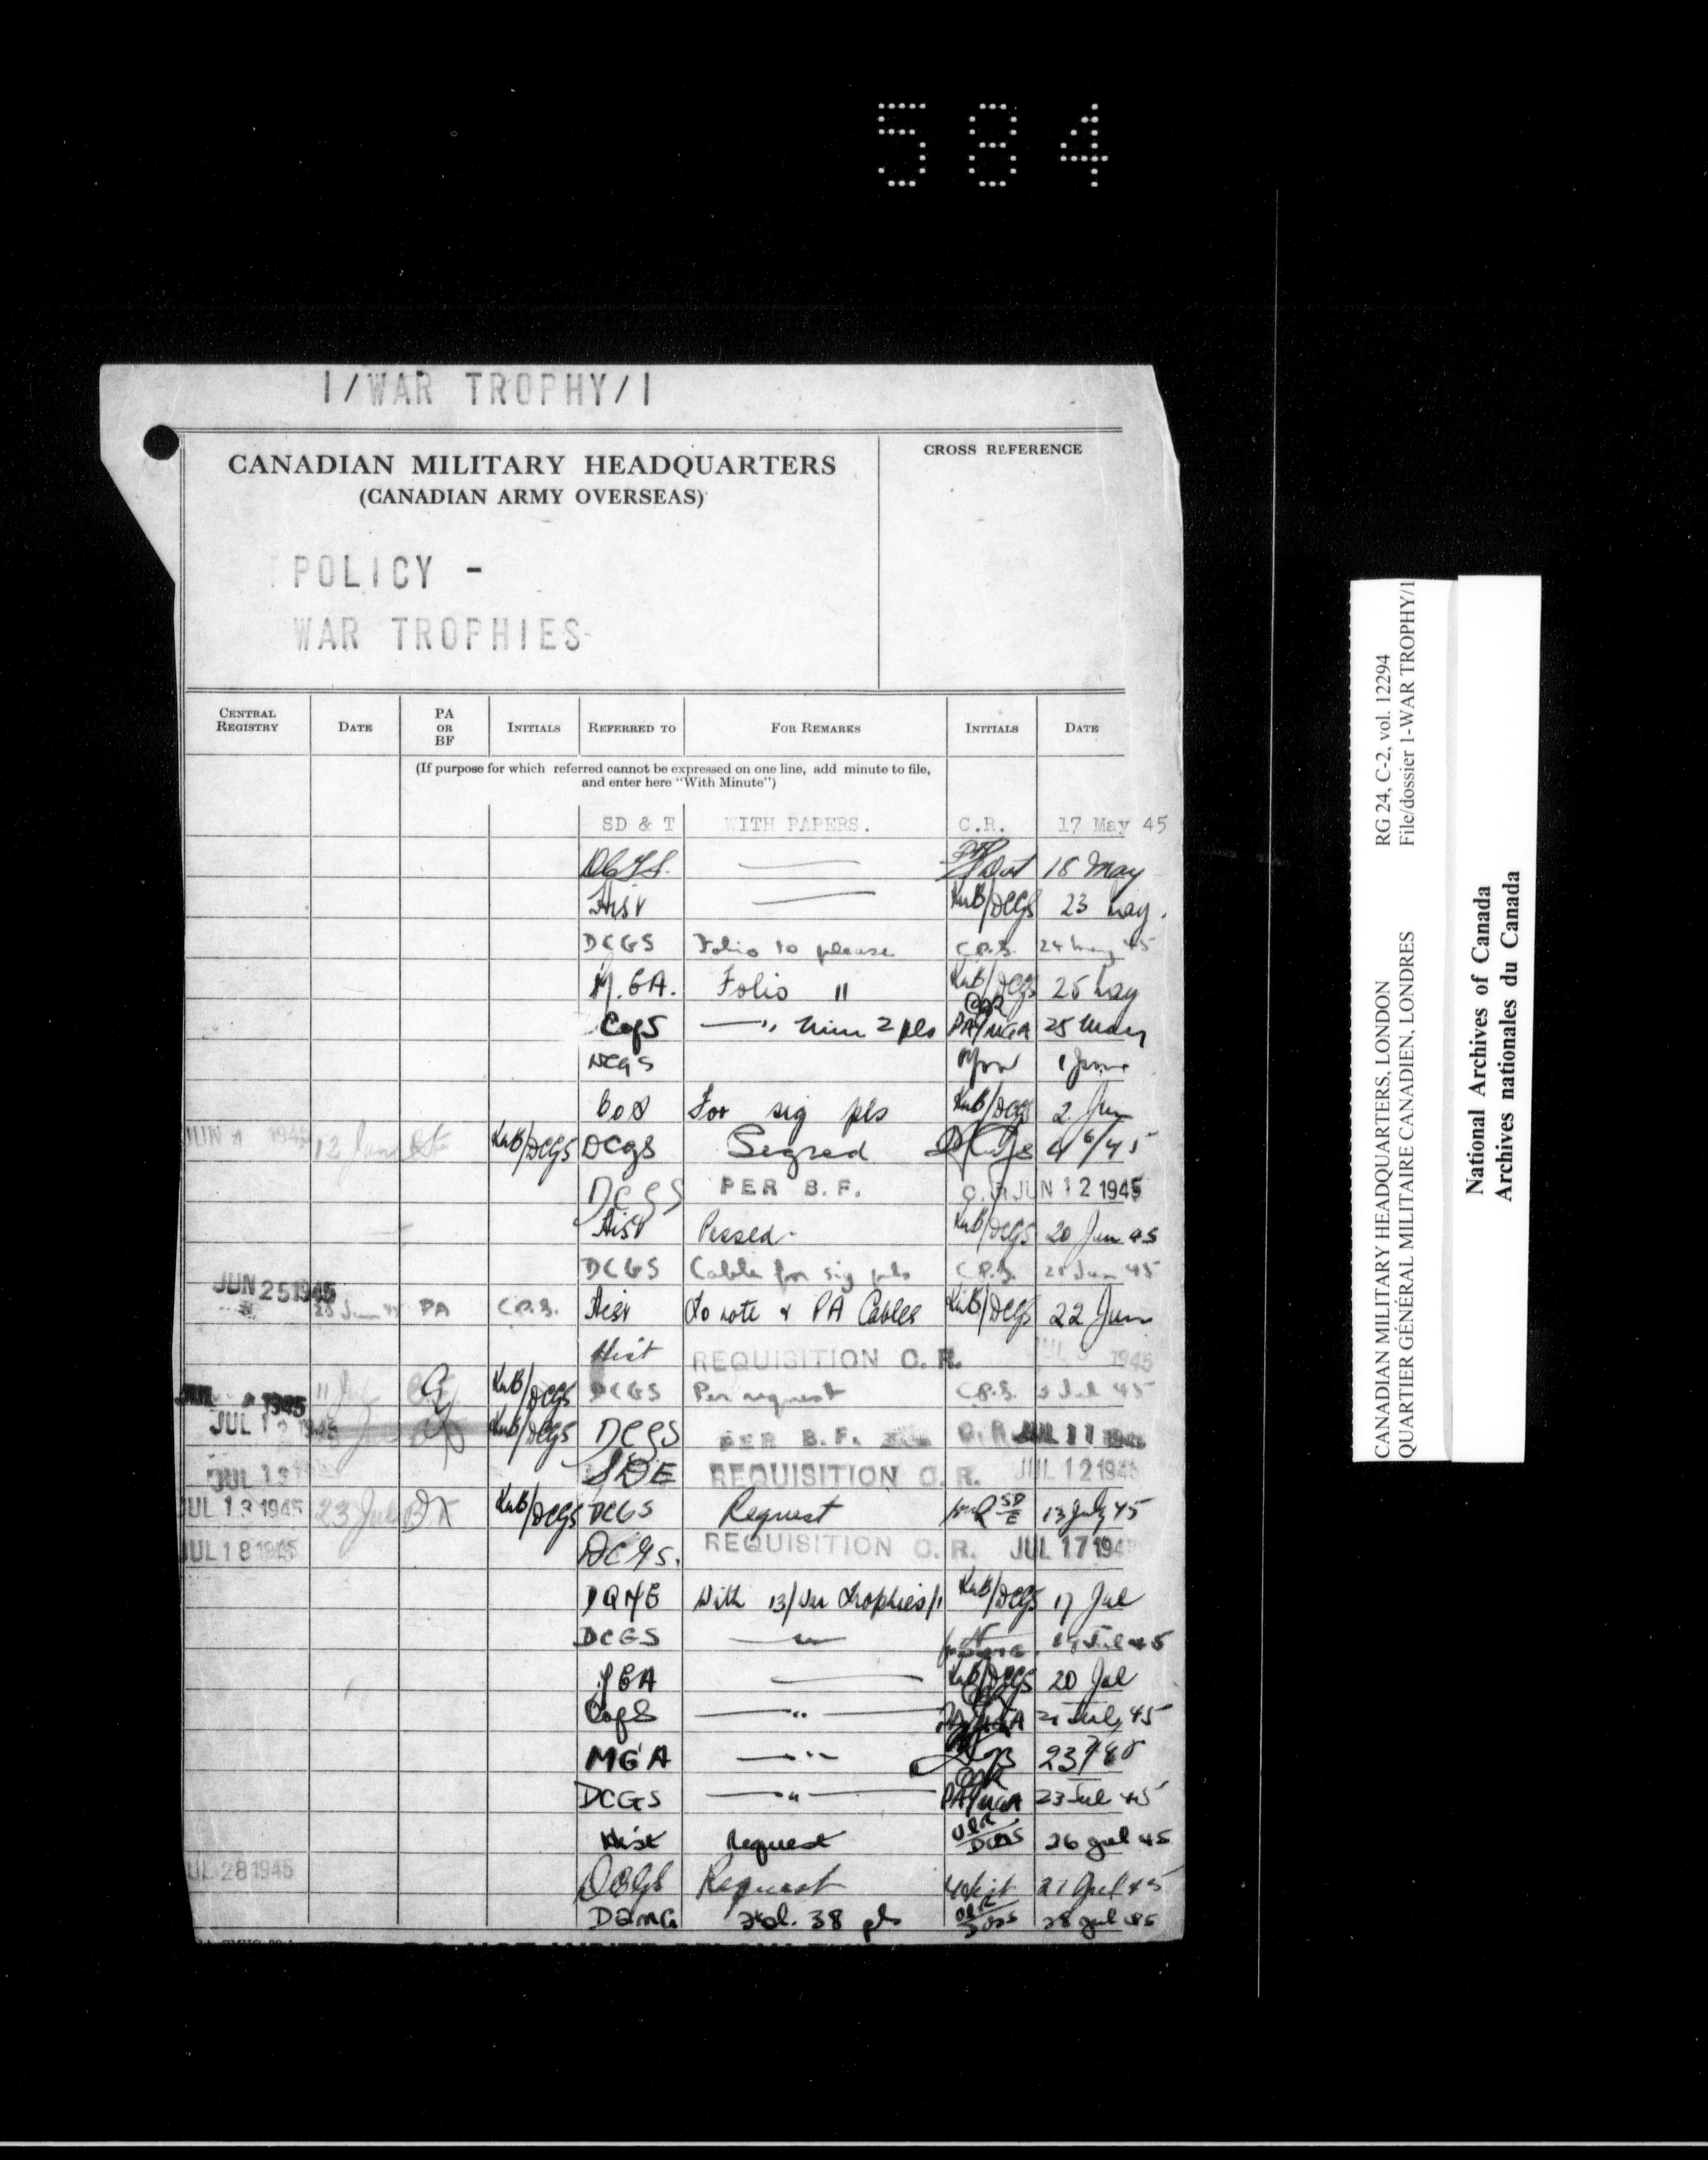 584
1/WAR TROPHY/1
CANADIAN MILITARY HEADQUARTERS
(CANADIAN ARMY OVERSEAS)
CROSS REFERENCE
POLICY -
WAR TROPHIES
CENTRAL REGISTRY DATE PA OR BF INITIALS REFERRED TO FOR REMARKS INITIALS DATE
(If purpose for which referred cannot be expressed on one line, add minute to file,
and enter here "With Minute")
SD & T WITH PAPERS. C.R. 17 May 45
18 May
Hist KWB/DCGS 23 May.
DCGS Folio 10 please C.P.S. 24 May 45
M.G.A. Folio 11 KWB/DCGS 25 May
CofS —"— 2 pls PA/MGA 25 May
DCGS 1 June
CoS For sig pls KWB/DCGS 2 Jun
JUN 1945 12 June KWB/DCGS DCGS Signed 4/6/45
DCGS PER B.F. C.R. JUN 12 1945
Hist Passed. KWB/DCGS 20 Jun 45
DCGS Cable for sig pls C.P.S. 21 Jun 45
JUN 25 1945 PA C.P.S. Hist To note & PA Cables KWB/DCGS 22 Jun
Hist REQUISITION C.R. JUL 1945
JUL 1945 11 Jul KWB/DCGS DCGS Per request C.P.S. 3 Jul 45
JUL 1945 KWB/DCGS DCGS PER B.F. C.R. JUL 11 1945
JUL 13 SDE REQUISITION C.R. JUL 12 1945
JUL 13 1945 23 Jul KWB/DCGS DCGS Request SD/E 13 July 45
JUL 18 1945 DCGS. REQUISITION C.R. JUL 17 194
DQME With 13/War Trophies/1 KWB/DCGS 17 Jul
DCGS —"— Jul 45
MGA KWB/DCGS 20 Jul
CofS —"— PA/MGA 21 July 45
MGA —"— 23/7/45
DCGS —"— PA/MGA 23 Jul 45
Hist Request DCGS 26 Jul 45
JUL 28 1945 DCGS Request Hist 27 Jul 45
Fol. 38 pls 28 Jul 45
CANADIAN MILITARY HEADQUARTERS, LONDON RG 24, C-2, vol. 12294
QUARTIER GÉNÉRAL MILITAIRE CANADIEN, LONDRES File/dossier 1-WAR TROPHY/1
National Archives of Canada
Archives nationales du Canada